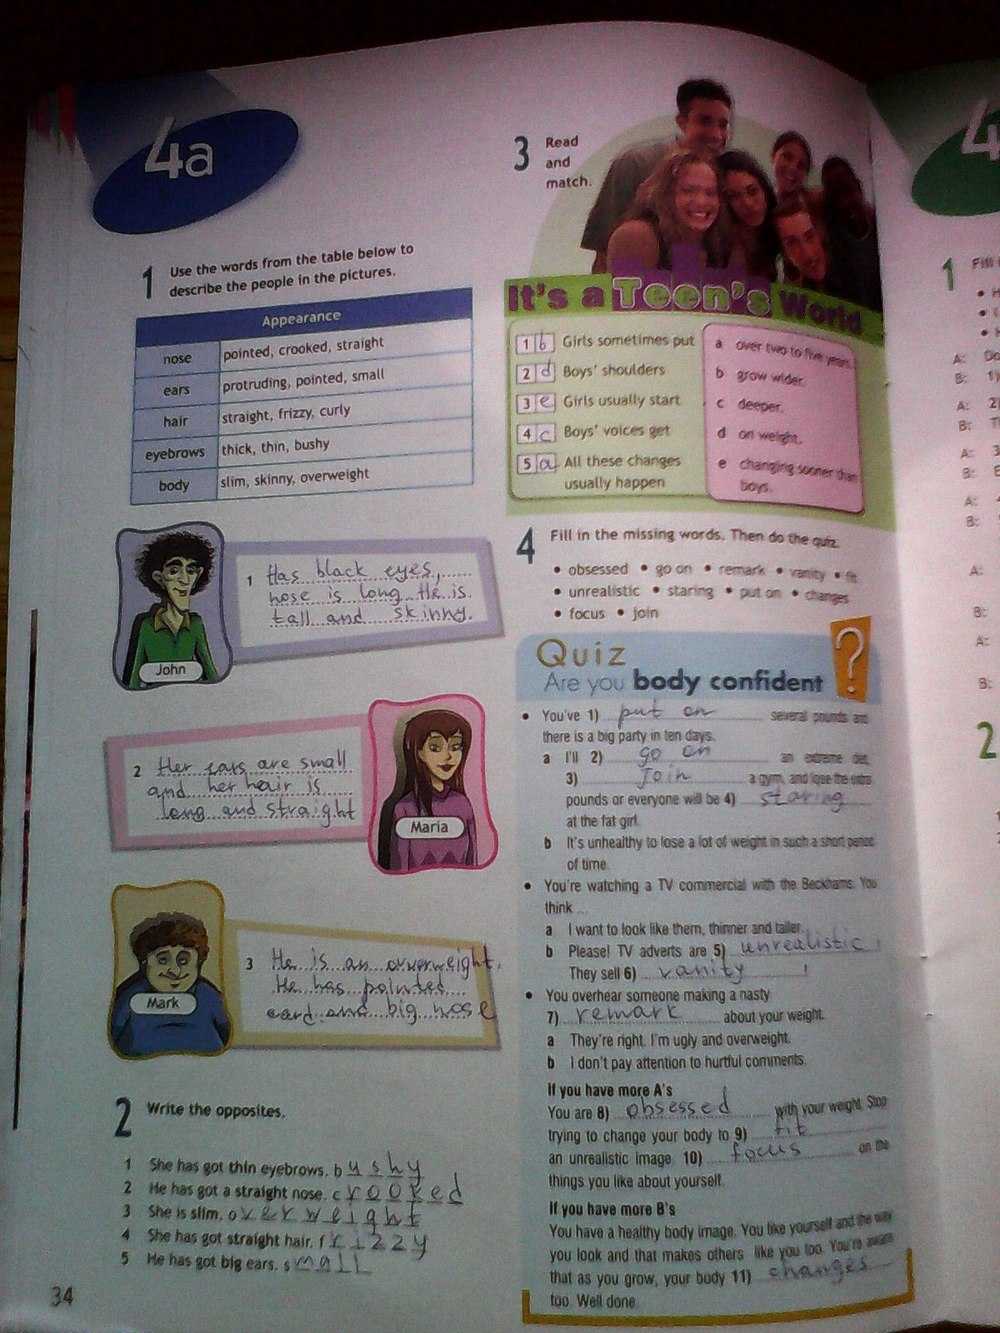 4a
1 Use the words from the table below to
describe the people in the pictures.
Appearance
nose pointed, crooked, straight
ears protruding, pointed, small
hair straight, frizzy, curly
eyebrows thick, thin, bushy
body slim, skinny, overweight
1 Has black eyes,
nose is long He is
tall and skinny.
John
2 Her ears are small
and her hair is
long and straight
Maria
3 He is an overweight.
He has pointed
eard and big nose
Mark
2 Write the opposites.
1 She has got thin eyebrows. bushy
2 He has got a straight nose. crooked
3 She is slim. overweight
4 She has got straight hair. frizzy
5 He has got big ears. small
34
3 Read
and
match.
It's a Teen's World
1 b Girls sometimes put
2 d Boys' shoulders
3 e Girls usually start
4 c Boys' voices get
5 a All these changes
usually happen
a over two to five years.
b grow wider.
c deeper.
d on weight.
e changing sooner than
boys.
4 Fill in the missing words. Then do the quiz.
• obsessed • go on • remark • vanity • fit
• unrealistic • staring • put on • changes
• focus • join
Quiz
Are you body confident
?
• You've 1) put on several pounds and
there is a big party in ten days.
a I'll 2) go on an extreme diet,
3) Join a gym, and lose the extra
pounds or everyone will be 4) staring
at the fat girl.
b It's unhealthy to lose a lot of weight in such a short period
of time.
• You're watching a TV commercial with the Beckhams. You
think ...
a I want to look like them, thinner and taller.
b Please! TV adverts are 5) unrealistic !
They sell 6) vanity !
• You overhear someone making a nasty
7) remark about your weight.
a They're right. I'm ugly and overweight.
b I don't pay attention to hurtful comments.
If you have more A's
You are 8) obsessed with your weight. Stop
trying to change your body to 9) fit
an unrealistic image. 10) focus on the
things you like about yourself.
If you have more B's
You have a healthy body image. You like yourself and the way
you look and that makes others like you too. You're aware
that as you grow, your body 11) changes
too. Well done.
4
1 Fill
A:
B: 1)
A: 2)
B:
A: 3
B:
A:
B:
A:
B:
A:
B:
2